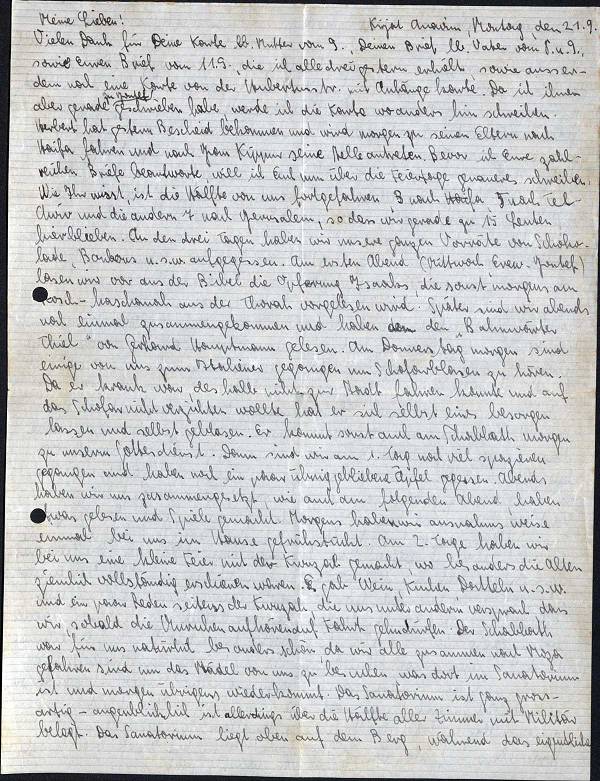 Meine Lieben! Kirjat Anavim, Montag, den 21.9.
Vielen Dank für Deine Karte lb. Mutter vom 9., Deinen Brief lb. Vater vom 8. u. 9.,
sowie Euren Brief vom 11.9., die ich alle drei gestern erhielt sowie ausser-
dem noch eine Karte von der mit Anhänge karte. Da ich ihnen
aber gerade geschrieben habe werde ich die Karte wo anders hin schreiben.
Herbert hat gestern Bescheid bekommen und wird morgen zu seinen Eltern nach
Haifa fahren und nach Jom Kippur seine Stelle antreten. Bevor ich Eure zahl-
reichen Briefe beantworte will ich Euch nun über die Feiertage genaueres schreiben.
Wie Ihr wisst, ist die Hälfte von uns fortgefahren, 3 nach Haifa 5 nach Tel-
Aviv und die andern 7 nach Jerusalem, so dass wir gerade zu 15 Leuten
hierblieben. An den drei Tagen haben wir unsere ganzen Vorräte von Schoko-
lade, Bonbons u.s.w. aufgegessen. Am ersten Abend (Mittwoch Erew-Jontef)
lasen wir vor aus der Bibel die Opferung Isaaks, die sonst morgens am
Rosch-haschanah aus der Thorah vorgelesen wird. Später sind wir abends
noch einmal zusammengekommen und haben den "Bahnwärter
Thiel" von Gerhard Hauptmann gelesen. Am Donnerstag morgen sind
einige von uns zum Italiener gegangen um Schofarblasen zu hören.
Da er krank war deshalb nicht zur Stadt fahren konnte und auf
das Schofar nicht verzichten wollte hat er sich selbst eins besorgen
lassen und selbst geblasen. Er kommt sonst auch am Schabbath morgen
zu unserm Gottesdienst. Dann sind wir am 1. Tag noch viel spazieren
gegangen und haben noch ein paar übriggebliebene Äpfel gegessen. Abends
haben wir uns zusammengesetzt, wie auch am folgenden Abend, haben
etwas gelesen und Spiele gemacht. Morgens haben wir ausnahms weise
einmal bei uns im Hause gefrühstückt. Am 2. Tage haben wir
bei uns eine kleine Feier mit der Kwuzah gemacht, wo besonders die Alten
ziemlich vollständig erschienen waren. Es gab Wein, Kuchen Datteln u.s.w.
und ein paar Reden seitens der Kwuzah die uns unter andern versprach dass
wir, sobald die Unruhen aufhören auf Fahrt gehn dürfen. Der Schabbath
war für uns natürlich besonders schön da wir alle zusammen nach Moza
gefahren sind um das Mädel von uns zu besuchen was dort im Sanatorium
ist und morgen übrigens wiederkommt. Das Sanatorium ist ganz gross-
artig - augenblicklich ist allerdings über die Hälfte aller Zimmer mit Militär
belegt. Das Sanatorium liegt oben auf dem Berg, während das eigentliche